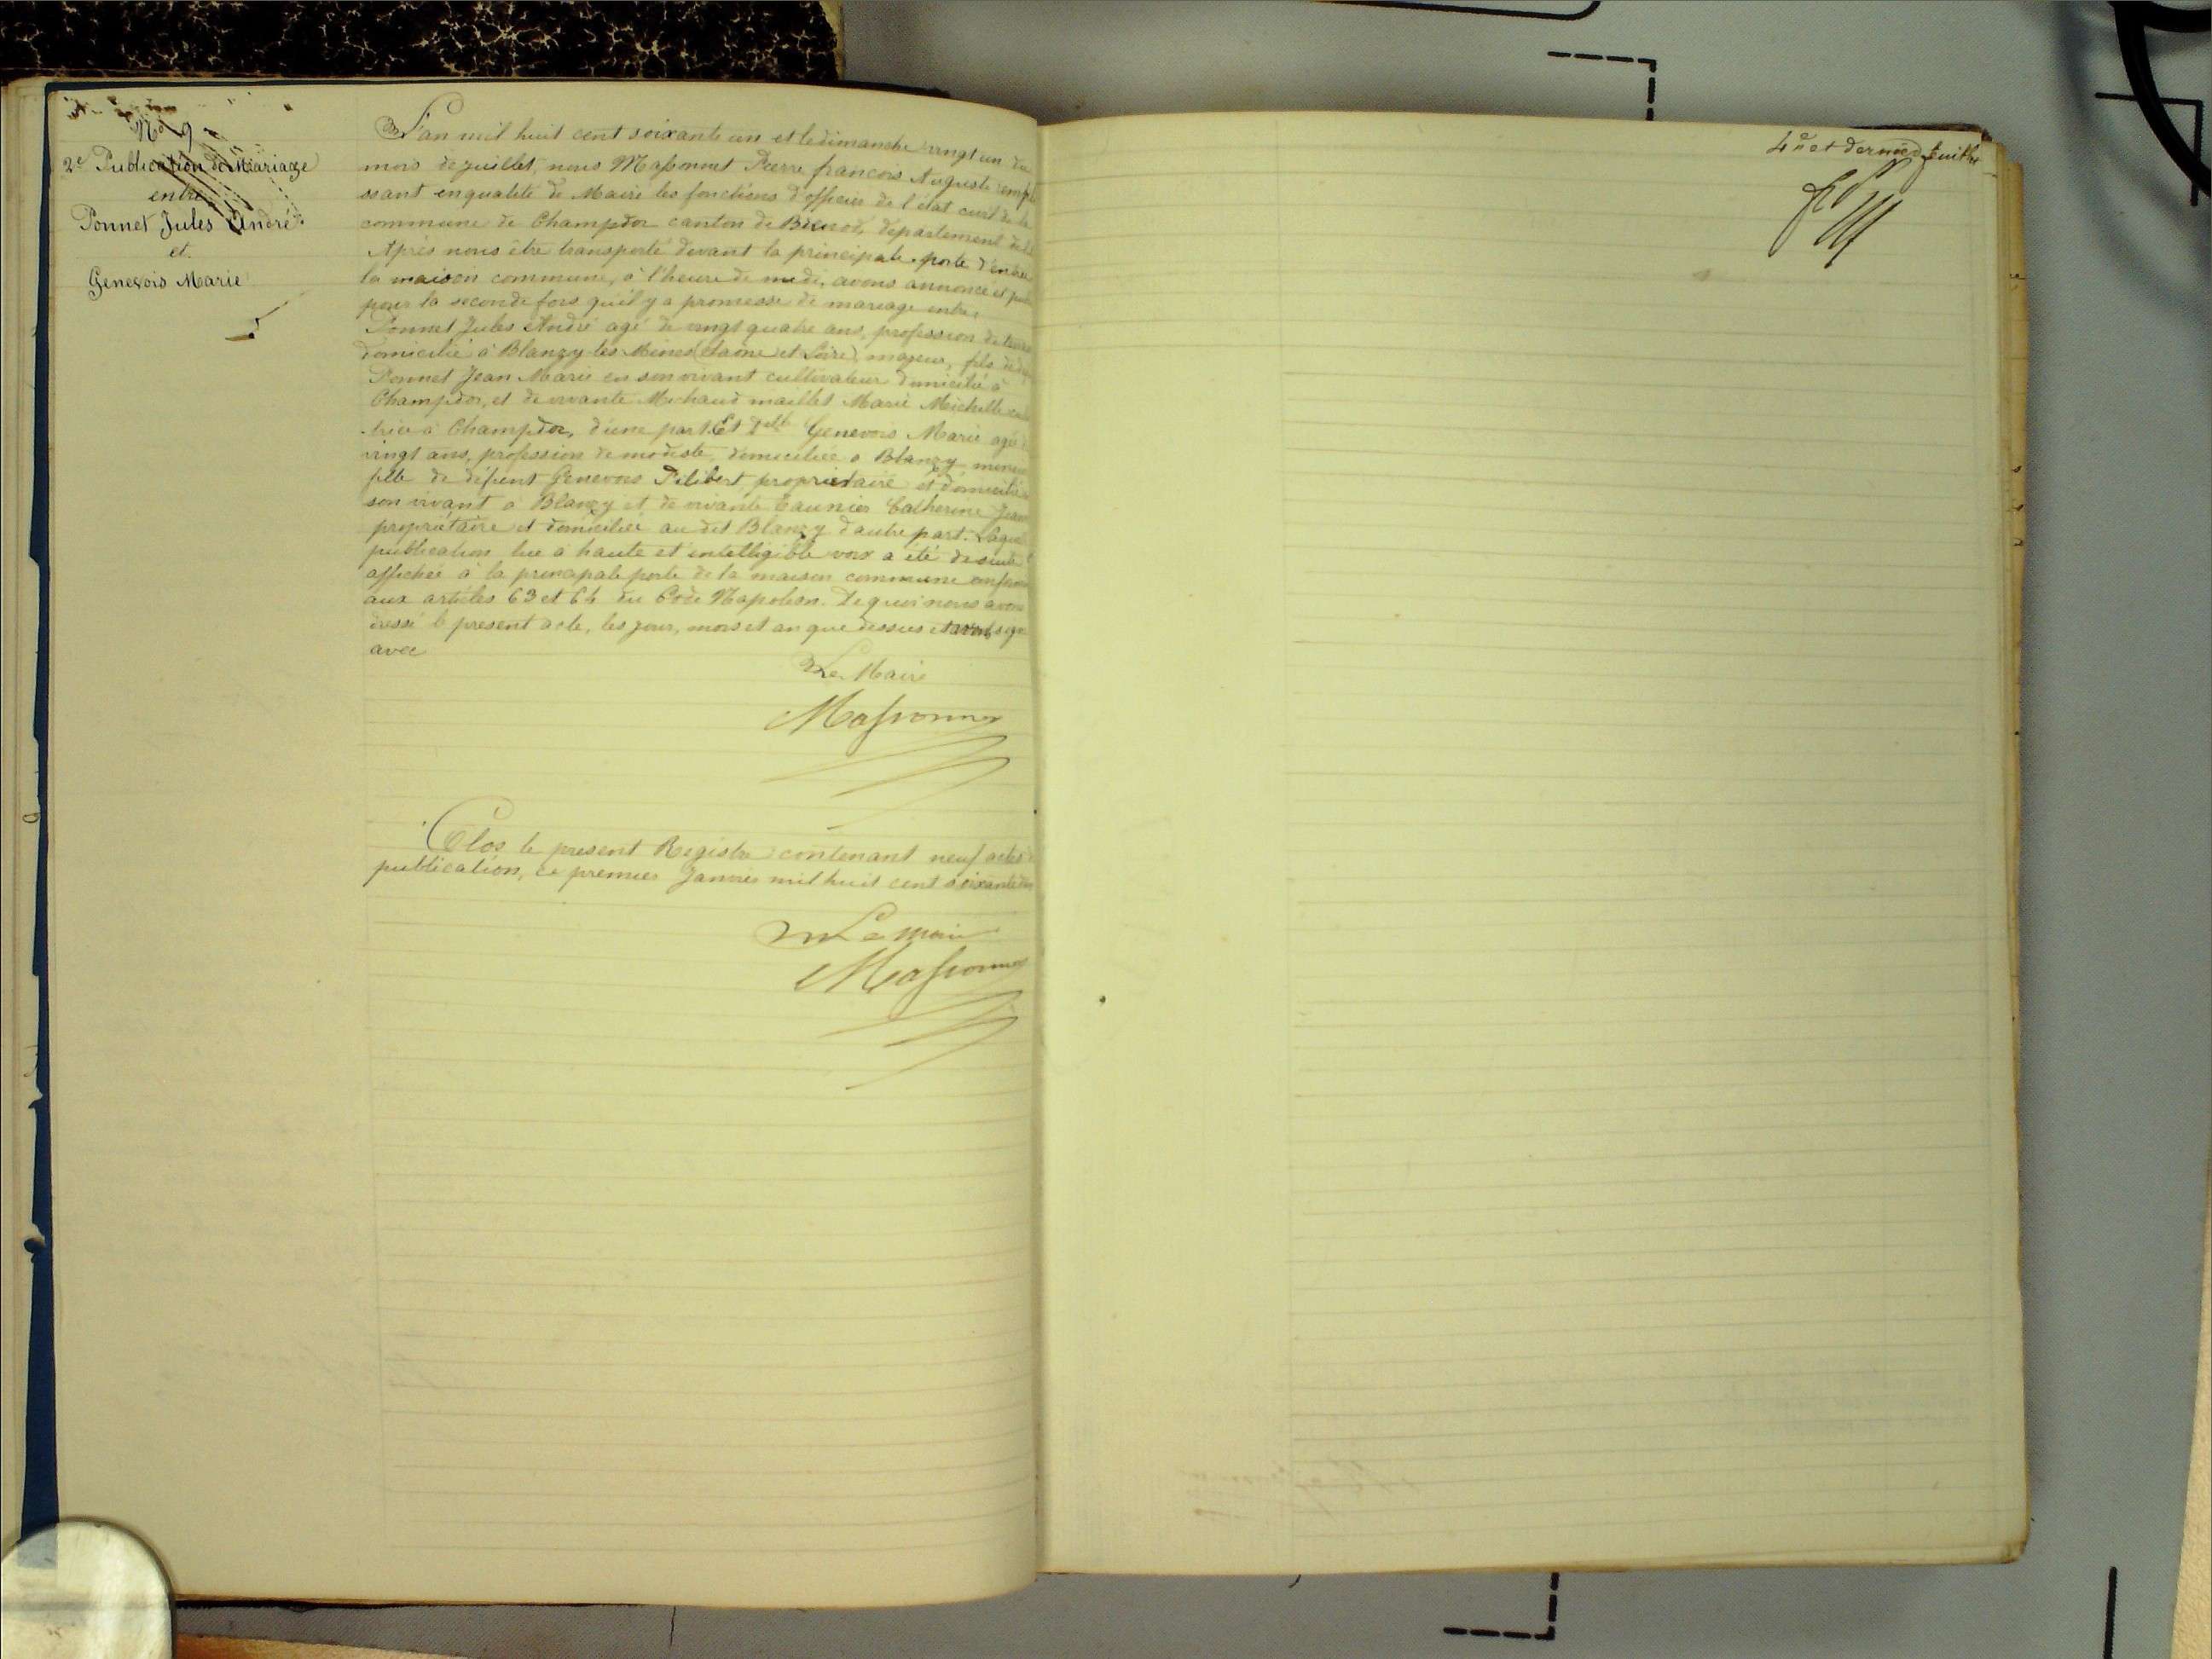 N° 9
2e Publication de Mariage
entre
Ponnet Jules André
et
Genevois Marie
L'an mil huit cent soixante un et le dimanche vingt un du
mois de juillet, nous Massonnet Pierre francois Auguste rempli
ssant en qualité de Maire les fonctions d'officier de l'état civil de la
commune de Champdor canton de Brenod, département de l'
Après nous être transporté devant la principale porte d'entrée
la maison commune, à l'heure de midi, avons annoncé et
pour la seconde fois qu'il y a promesse de mariage entre
Ponnet Jules André agé de vingt quatre ans, profession de
domicilié à Blanzy-les-Mines (Saone et Loire) majeur, fils de
Ponnet Jean Marie en son vivant cultivateur domicilié à
Champdor, et de vivante Michaud maillet Marie Michelle
trice à Champdor, d'une part. Et Delle Genevois Marie agée
vingt ans, profession de modiste, domiciliée à Blanzy mineure
fille de défunt Genevois Pilibert propriétaire et domicilié
son vivant à Blanzy et de vivante Launier Catherine Jean
propriétaire et domiciliée au dit Blanzy d'autre part. Laquelle
publication lue à haute et intelligible voix a été de suite
affichée à la principale porte de la maison commune conform
aux articles 63 et 64 du Code Napoléon. De quoi nous avons
dressé le présent acte, les jour, mois et an que dessus et avons signé
avec
Le Maire
Massonnet
Clos le present Registre contenant neuf actes de
publication, ce premier Janvier mil huit cent soixante deux
Le Maire
Massonnet
4e et dernier feuillet